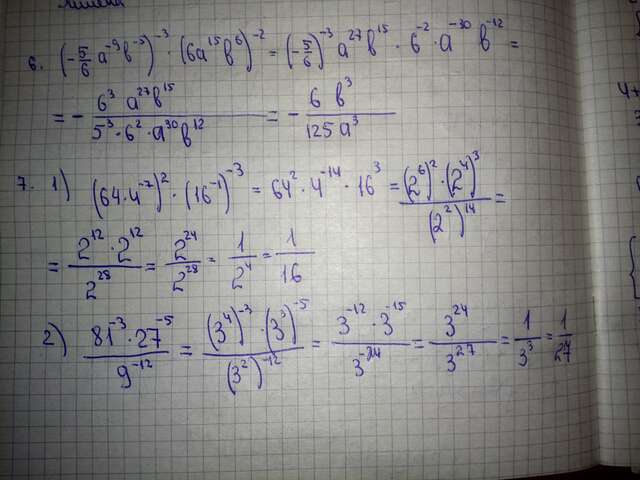 6. (-5/6 a⁻⁹b⁻⁵)⁻³ · (6a¹⁵b⁶)⁻² = (-5/6)⁻³ a²⁷b¹⁵ · 6⁻² · a⁻³⁰ b⁻¹² =
= - 6³ a²⁷b¹⁵ / 5³·6²·a³⁰b¹² = - 6 b³ / 125 a³
7. 1) (64·4⁻⁷)² · (16⁻¹)⁻³ = 64² · 4⁻¹⁴ · 16³ = (2⁶)² · (2⁴)³ / (2²)¹⁴ =
= 2¹² · 2¹² / 2²⁸ = 2²⁴ / 2²⁸ = 1 / 2⁴ = 1 / 16
2) 81⁻³ · 27⁻⁵ / 9⁻¹² = (3⁴)⁻³ · (3³)⁻⁵ / (3²)⁻¹² = 3⁻¹² · 3⁻¹⁵ / 3⁻²⁴ = 3²⁴ / 3²⁷ = 1 / 3³ = 1 / 27